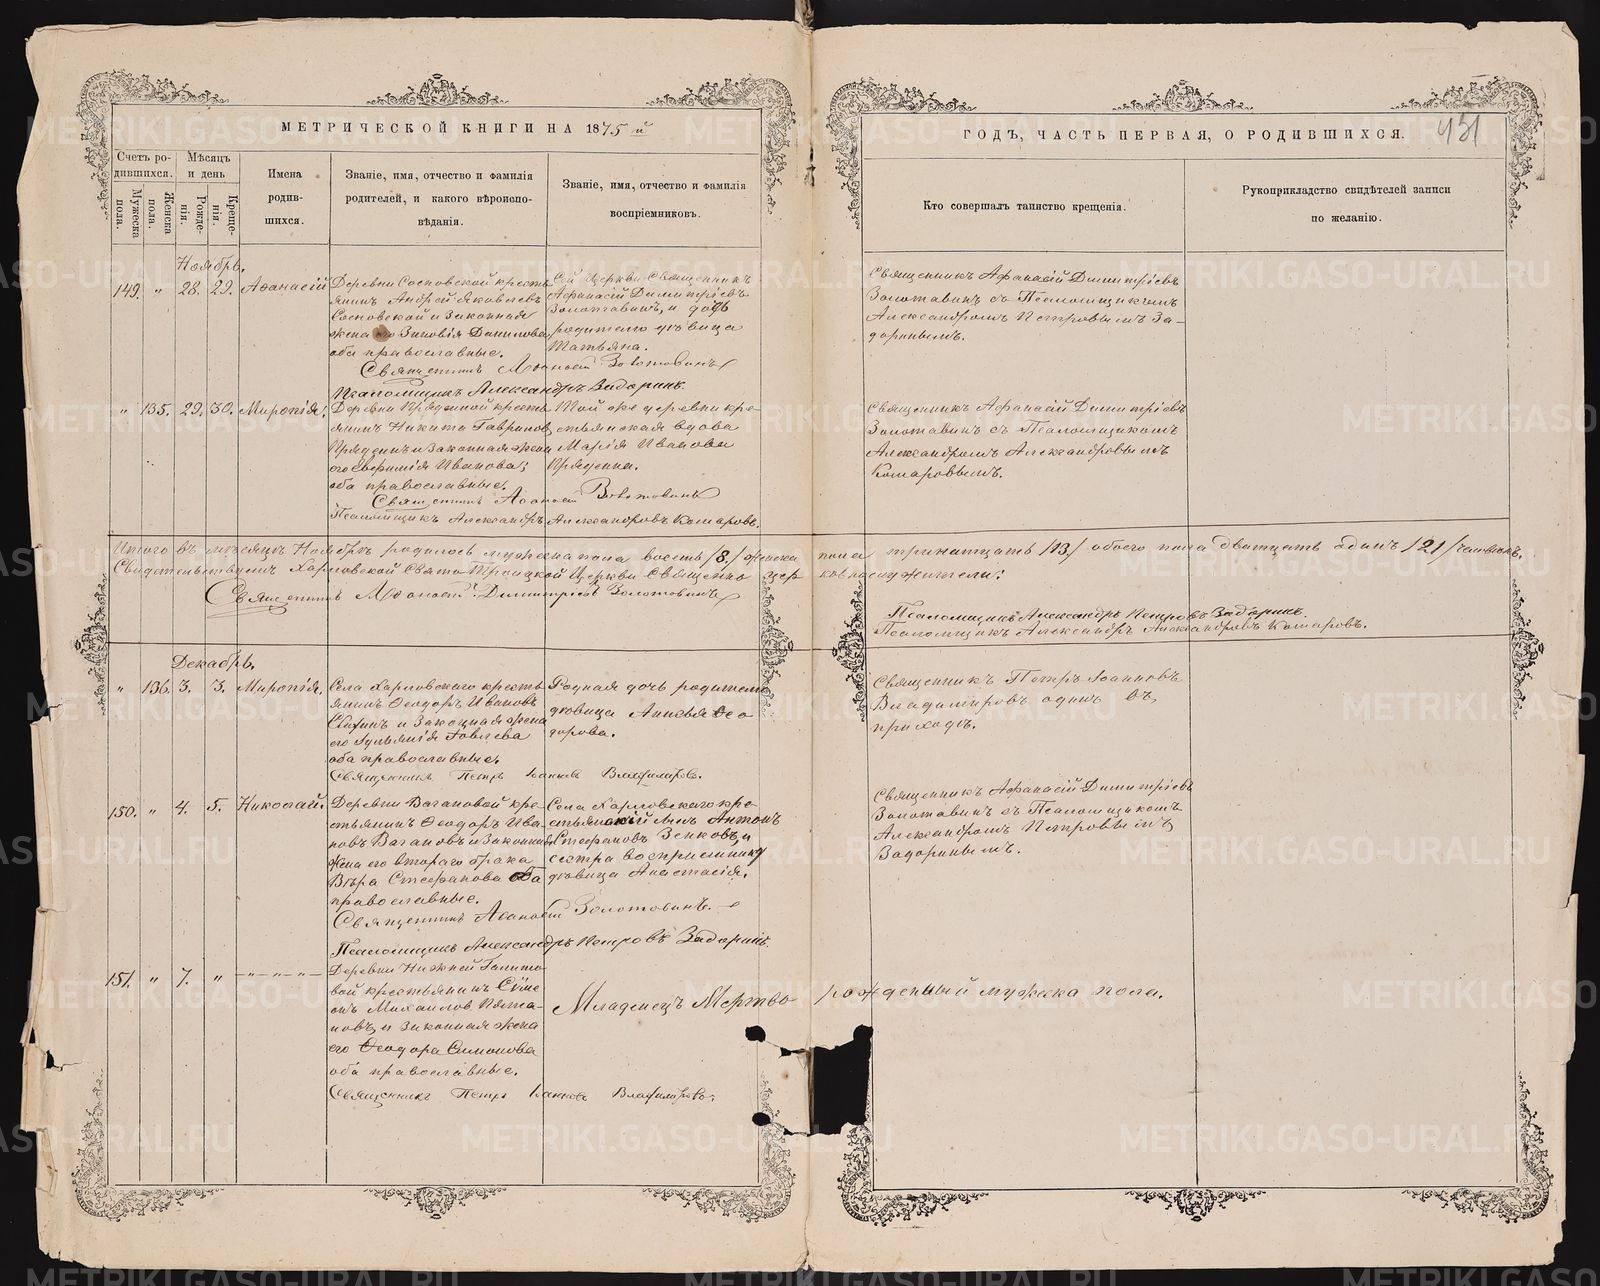 МЕТРИЧЕСКОЙ КНИГИ НА 1875 й
ГОДЪ, ЧАСТЬ ПЕРВАЯ, О РОДИВШИХСЯ.
431
Счетъ родившихся.
Мужеска пола.
Женска пола.
Мѣсяцъ и день
Рожденія.
Крещенія.
Имена
родив-
шихся.
Званіе, имя, отчество и фамилія
родителей, и какого вѣроиспо-
вѣданія.
Званіе, имя, отчество и фамилія
воспріемниковъ.
Кто совершалъ таинство крещенія.
Рукоприкладство свидѣтелей записи
по желанію.
Ноябрь.
149. " 28. 29. Афанасій
Деревни Сосновской кресть-
янинъ Андрей Яковлевъ
Сосновской и законная
жена его Зиновія Данилова
оба православные.
Сей Церкви Священникъ
Афанасій Димитріевъ
Золотавинъ, и дочь
родителю дѣвица
Татьяна.
Священникъ Афанасій Димитріевъ
Золотавинъ съ Псаломщикомъ
Александромъ Петровымъ За-
доринымъ.
Священникъ Афанасій Золотовинъ
Псаломщикъ Александръ Задоринъ.
" 135. 29. 30. Миропія.
янинъ Никита Гавриловъ
и законная жена
его Евфимія Иванова;
оба православные.
Той же деревни кре-
стьянская вдова
Марія Иванова
Священникъ Афанасій Димитріевъ
Золотавинъ съ Псаломщикомъ
Александромъ Александровымъ
Комаровымъ.
Священникъ Афанасій Золотовинъ
Псаломщикъ Александръ Александровъ Комаровъ.
Итого въ мѣсяцѣ Ноябрѣ родилось мужеска пола восемь /8./ женска пола тринатцать /13/ обоего пола двадцать одинъ /21/ человѣкъ.
Свидетельствуемъ Харловской Свято-Троицкой Церкви Священно церковнослужители:
Священникъ Афанасій Димитріевъ Золотовинъ
Псаломщикъ Александръ Петровъ Задоринъ.
Псаломщикъ Александръ Александровъ Комаровъ.
Декабрь.
" 136. 3. 3. Миропія.
Села Харловскаго кресть-
янинъ Ѳеодоръ Ивановъ
и законная жена
его
оба православные.
Родная дочь родителю
дѣвица Ѳео-
дорова.
Священникъ Петръ Іоанновъ
Владимировъ одинъ въ
приходѣ.
Священникъ Петръ Іоанновъ Владимировъ.
150. " 4. 5. Николай.
Деревни Вагановой кре-
стьянинъ Ѳеодоръ Ива-
новъ Вагановъ и законная
жена его втораго брака
Вѣра Стефанова оба
православные.
Села Харловскаго кре-
стьянскій сынъ Антонъ
Стефановъ Зенковъ, и
сестра воспріемнику
дѣвица Анастасія.
Священникъ Афанасій Димитріевъ
Золотавинъ съ Псаломщикомъ
Александромъ Петровымъ
Задоринымъ.
Священникъ Афанасій Золотовинъ.
Псаломщикъ Александръ Петровъ Задоринъ.
151. " 7. " —"—"—"—
Деревни Нижней
крестьянинъ Симе-
онъ Михаиловъ
и законная жена
его Ѳеодора Симонова
оба православные.
Младенецъ Мертворожденный мужеска пола.
Священникъ Петръ Іоанновъ Владимировъ.